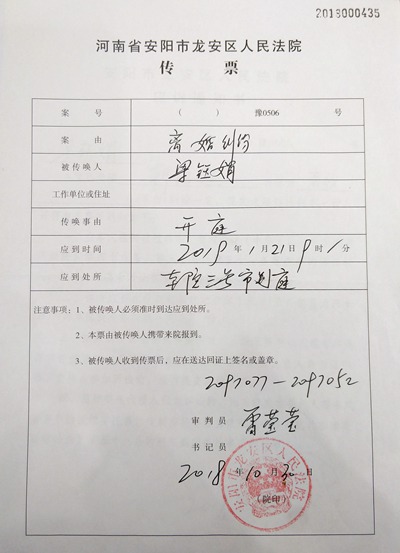 2018000435
河南省安阳市龙安区人民法院
传 票
案 号 （ ） 豫0506 号
案 由 离婚纠纷
被传唤人 梁钰娟
工作单位或住址
传唤事由 开庭
应到时间 2019 年 1 月 21 日 9 时 / 分
应到处所 庭
注意事项：1、被传唤人必须准时到达应到处所。
2、本票由被传唤人携带来院报到。
3、被传唤人收到传票后，应在送达回证上签名或盖章。
审判员
书记员
2018 年 10 月 30 日
（院印）
安阳市龙安区人民法院